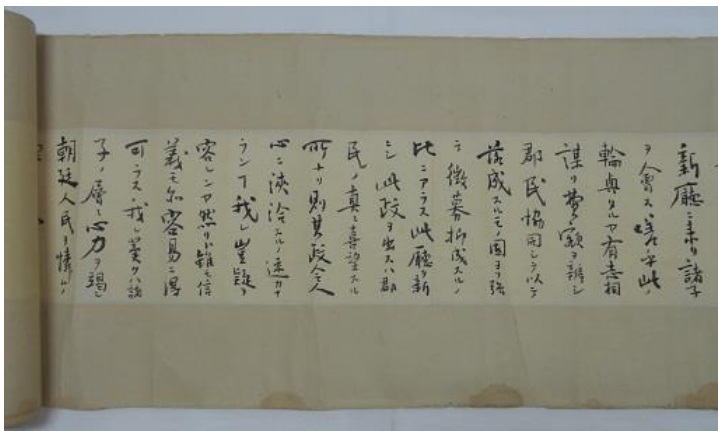 新廳ニ来リ諸子
ヲ会ス嗟乎此ノ
輪奐タルヤ有志相
謀リ費額ヲ辨シ
郡民協同シテ以テ
落成スルモノ固ヨリ強
テ徴募抑成スルノ
比ニアラス此廳ヲ新
ニシ此政ヲ出スハ郡
民ノ真ニ喜望スル
所ナリ則其政令人
心ニ浹洽スルノ速カナ
ランヿ我レ豈疑ヲ
容レンヤ然リト雖モ信
義モ亦容易ニ得
可ラス我レ冀クハ諸
子ノ層一層心力ヲ竭シ
朝廷人民ヲ憐ムノ